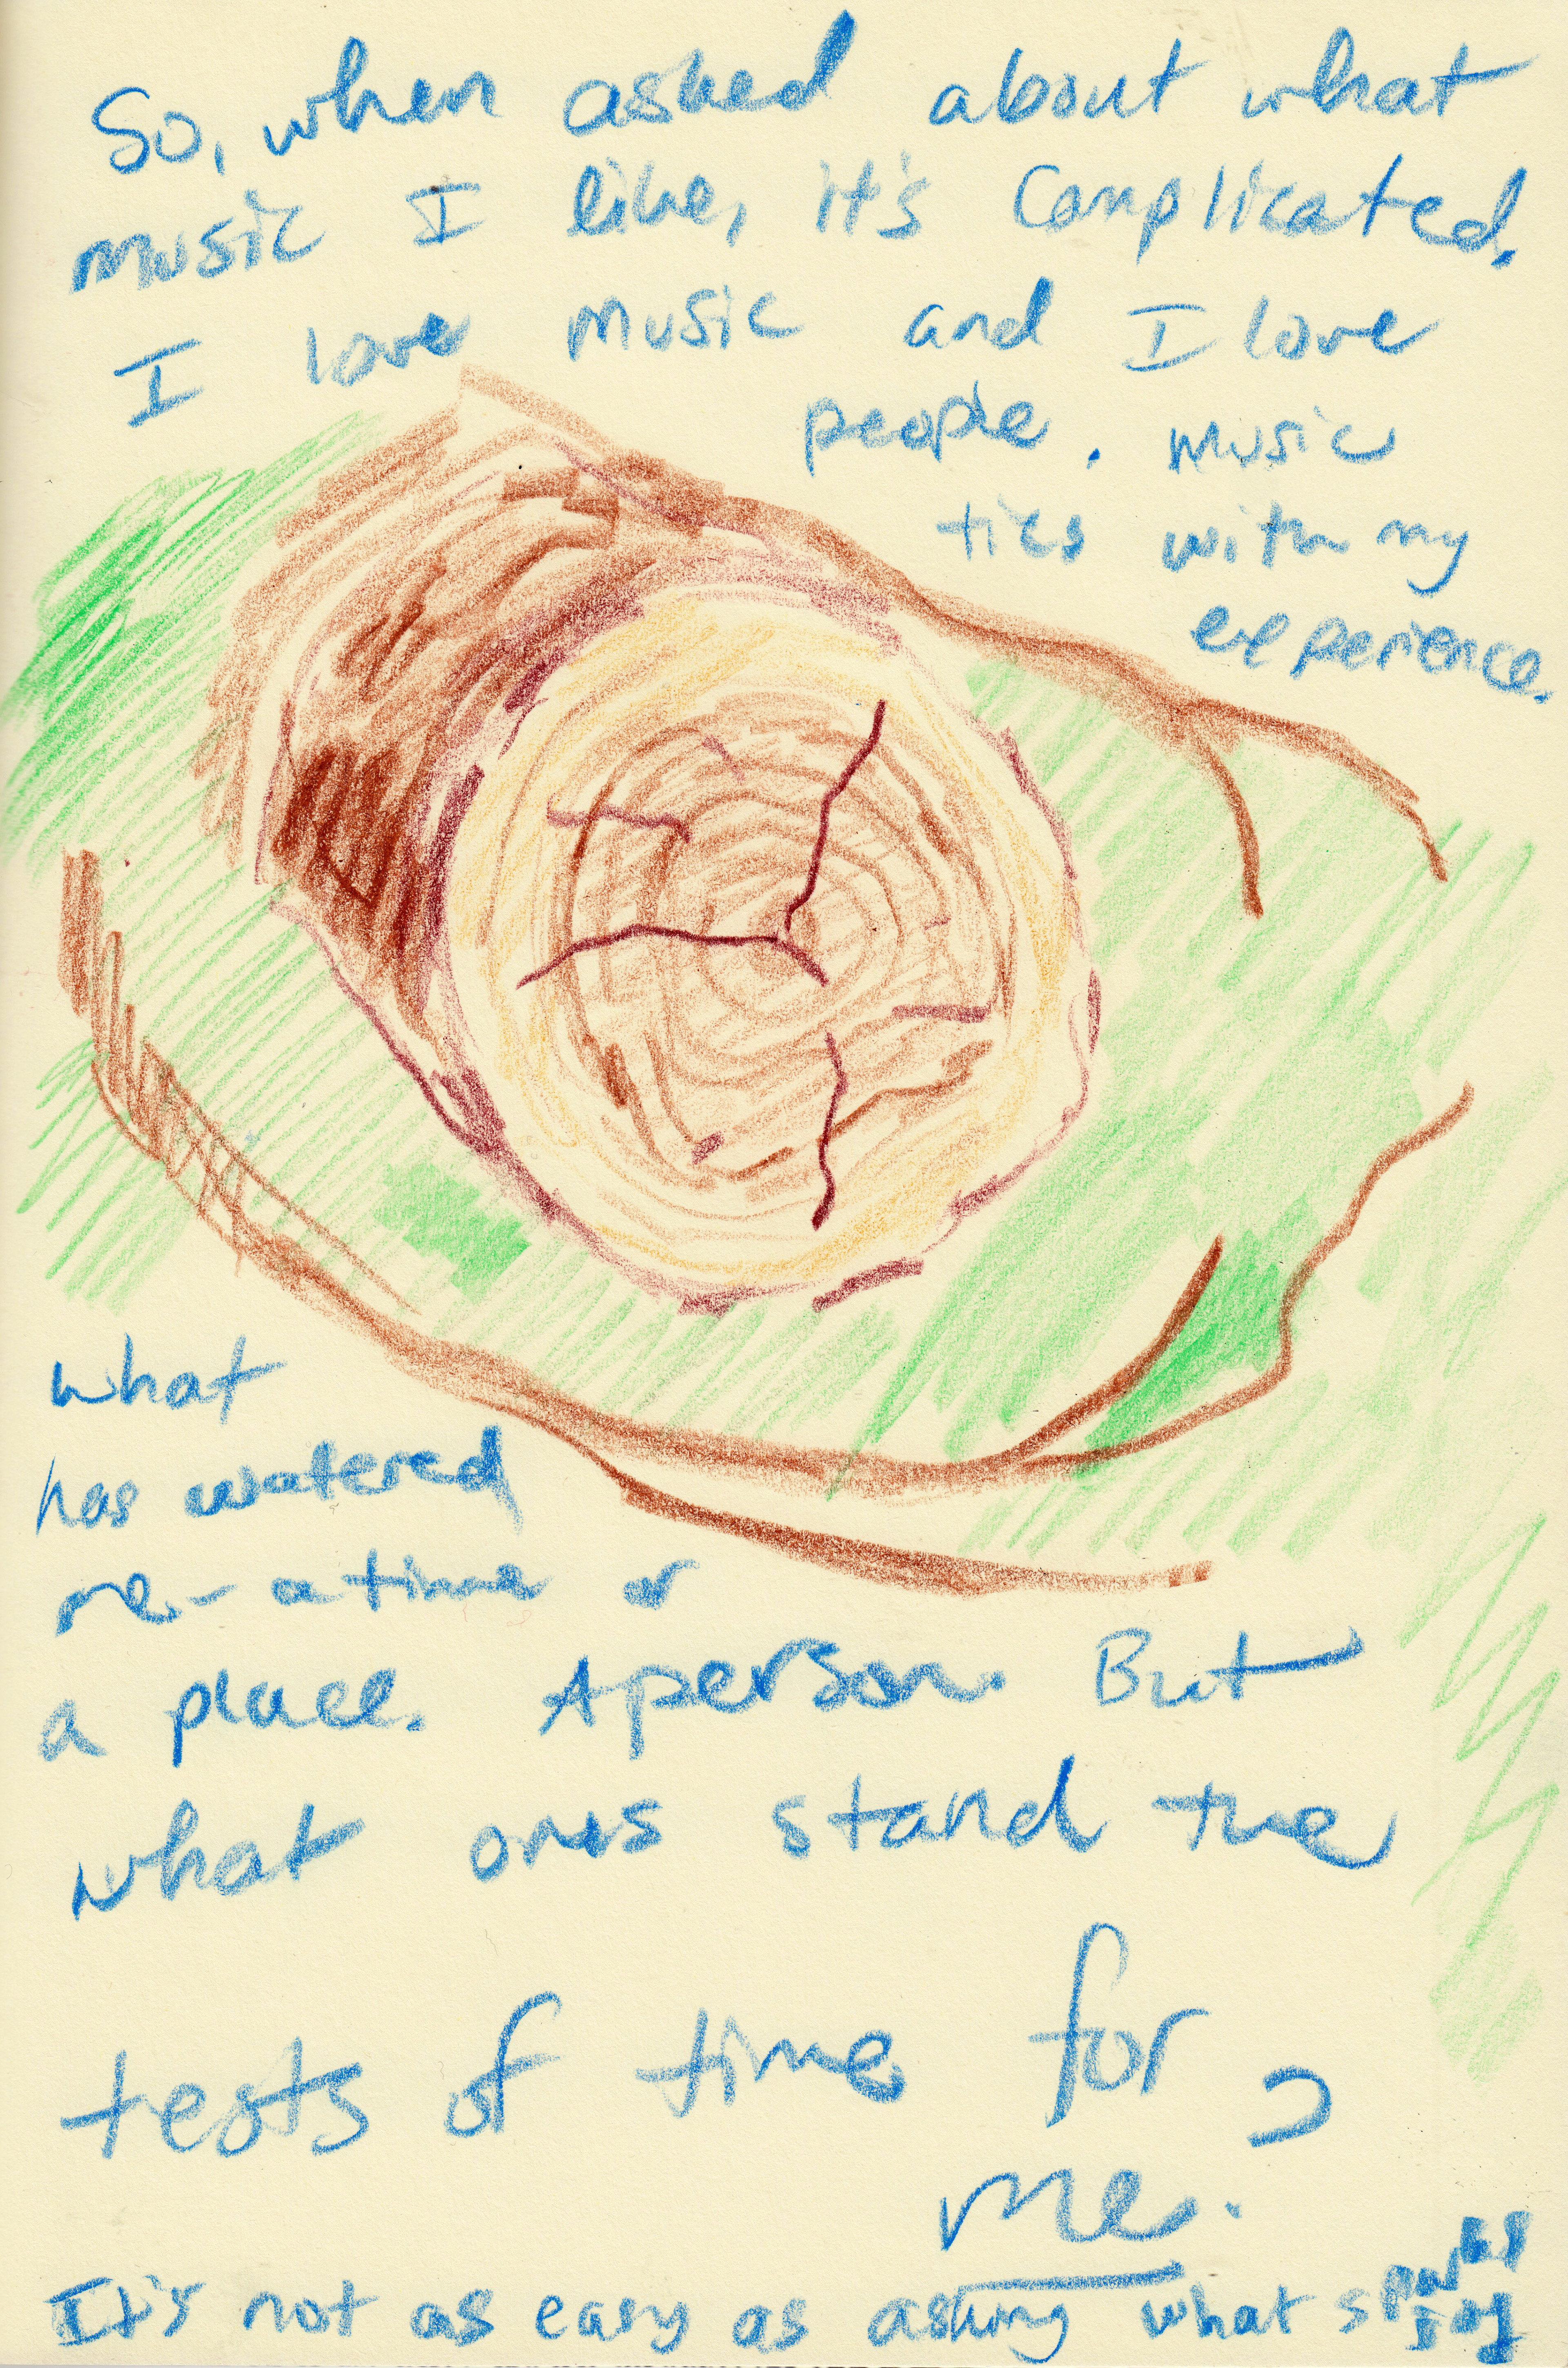 So, when asked about what
music I like, it's complicated.
I love music and I love
people. music
ties with my
experience.
what
has watered
me - a time or
a place. A person. But
what ones stand the
tests of time for
me.
It's not as easy as asking what